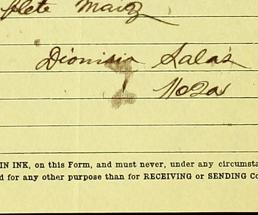 plete Marz
Dionisia Salas
IN INK, on this Form, and must never, under any circumsta
d for any other purpose than for RECEIVING or SENDING Co